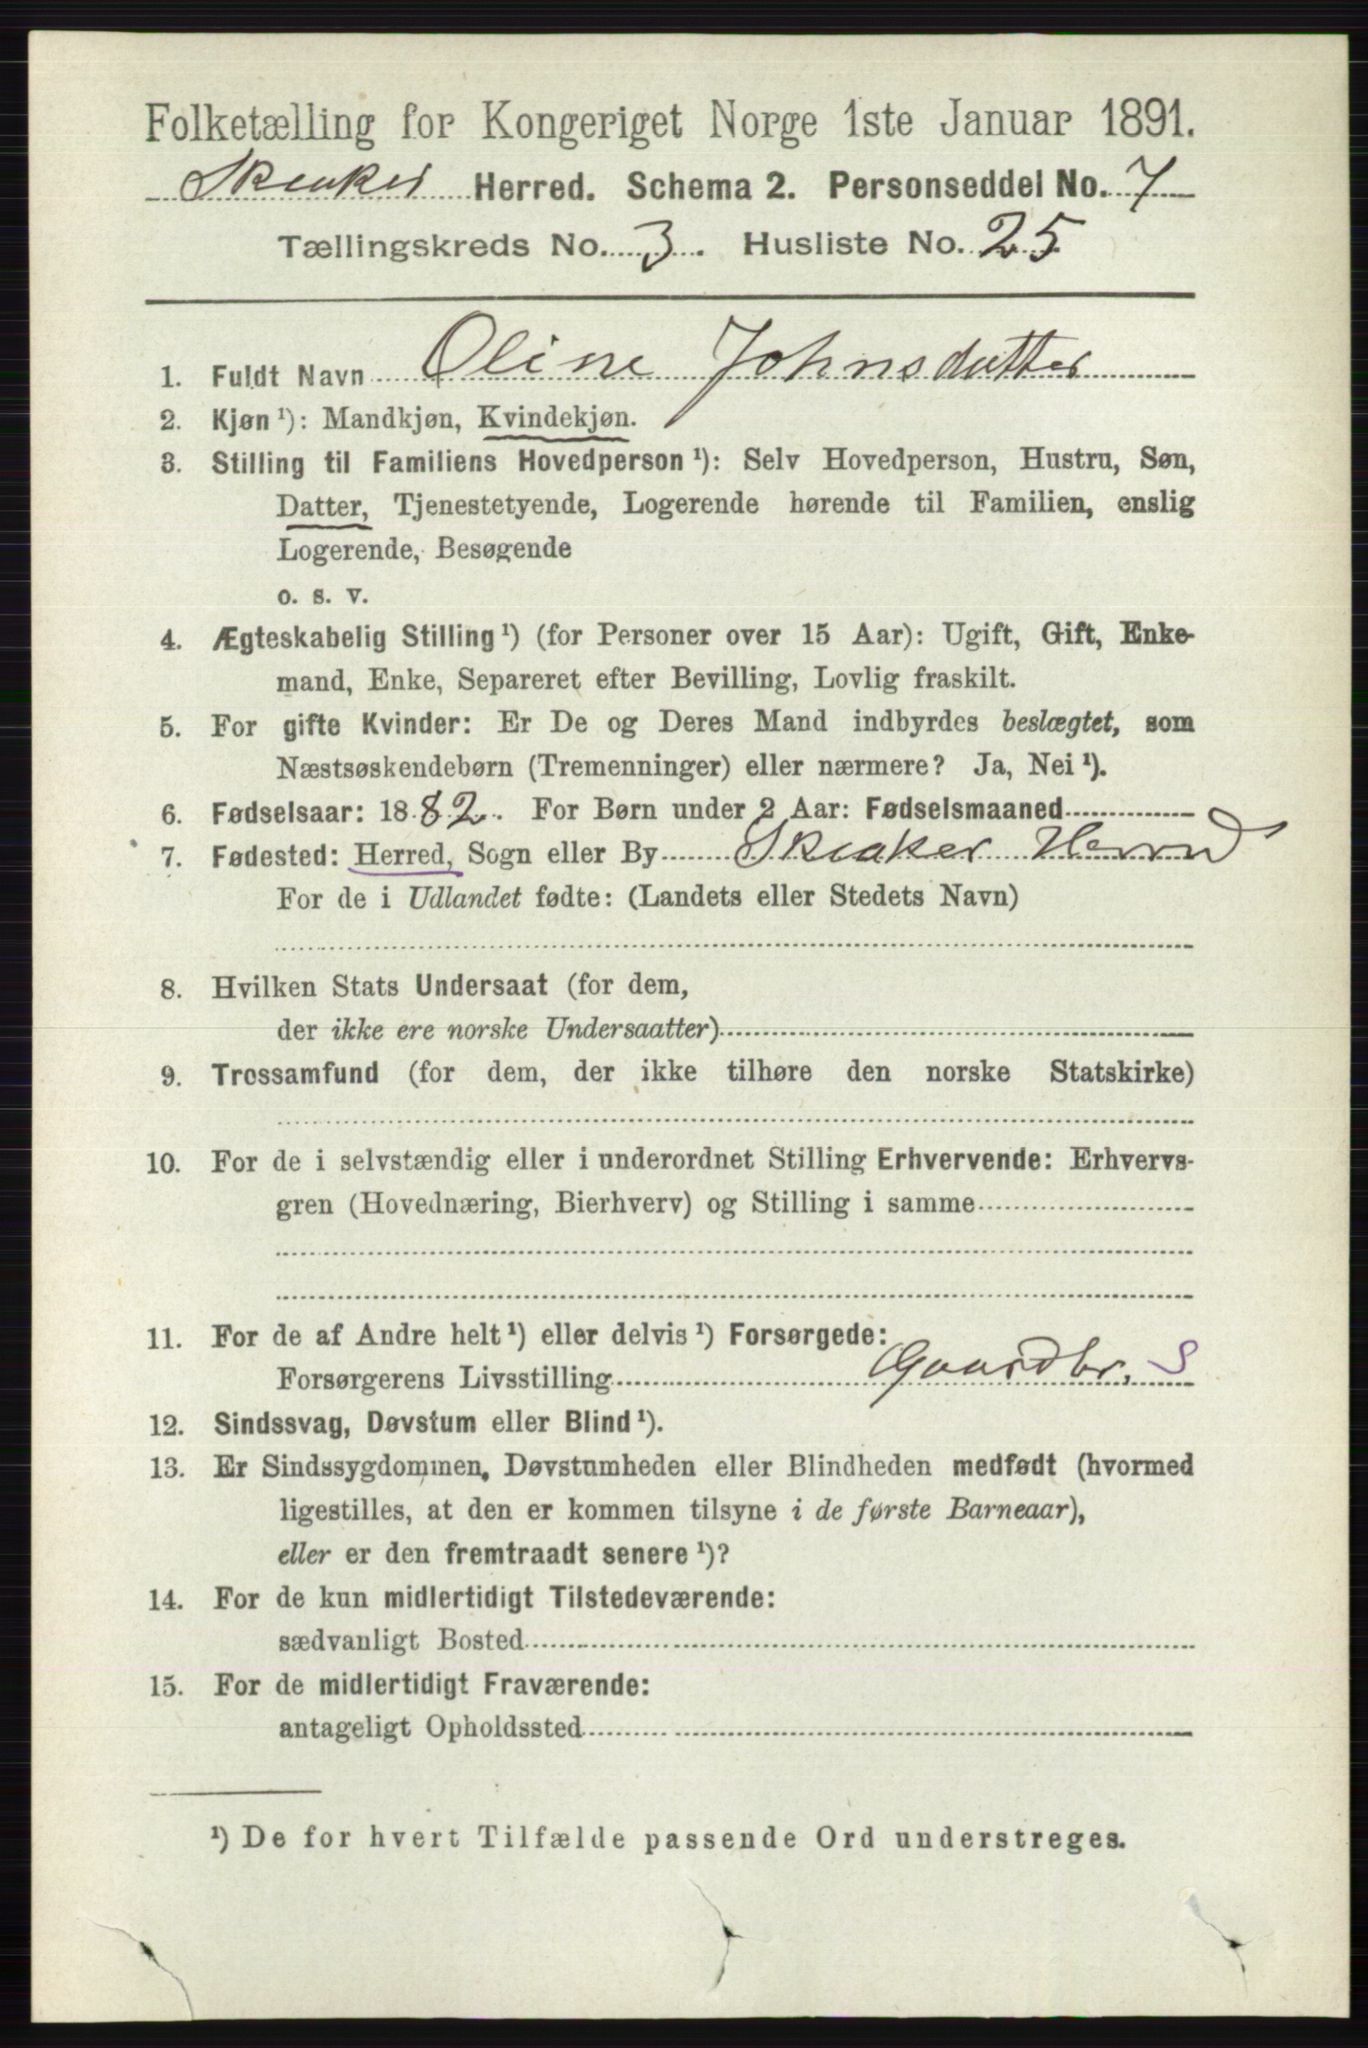 Folketælling for Kongeriget Norge 1ste Januar 1891.
Skeaker Herred. Schema 2. Personseddel No. 7
Tællingskreds No. 3. Husliste No. 25
1. Fuldt Navn Oline Johnsdatter
2. Kjøn ¹): Mandkjøn, Kvindekjøn.
3. Stilling til Familiens Hovedperson ¹): Selv Hovedperson, Hustru, Søn,
Datter, Tjenestetyende, Logerende hørende til Familien, enslig
Logerende, Besøgende
o. s. v.
4. Ægteskabelig Stilling ¹) (for Personer over 15 Aar): Ugift, Gift, Enke-
mand, Enke, Separeret efter Bevilling, Lovlig fraskilt.
5. For gifte Kvinder: Er De og Deres Mand indbyrdes beslægtet, som
Næstsøskendebørn (Tremenninger) eller nærmere? Ja, Nei ¹).
6. Fødselsaar: 1882. For Børn under 2 Aar: Fødselsmaaned
7. Fødested: Herred, Sogn eller By Skeaker Herred
For de i Udlandet fødte: (Landets eller Stedets Navn)
8. Hvilken Stats Undersaat (for dem,
der ikke ere norske Undersaatter)
9. Trossamfund (for dem, der ikke tilhøre den norske Statskirke)
10. For de i selvstændig eller i underordnet Stilling Erhvervende: Erhvervs-
gren (Hovednæring, Bierhverv) og Stilling i samme
11. For de af Andre helt ¹) eller delvis ¹) Forsørgede:
Forsørgerens Livsstilling Gaardbr. S
12. Sindssvag, Døvstum eller Blind ¹).
13. Er Sindssygdommen, Døvstumheden eller Blindheden medfødt (hvormed
ligestilles, at den er kommen tilsyne i de første Barneaar),
eller er den fremtraadt senere ¹)?
14. For de kun midlertidigt Tilstedeværende:
sædvanligt Bosted
15. For de midlertidigt Fraværende:
antageligt Opholdssted
¹) De for hvert Tilfælde passende Ord understreges.